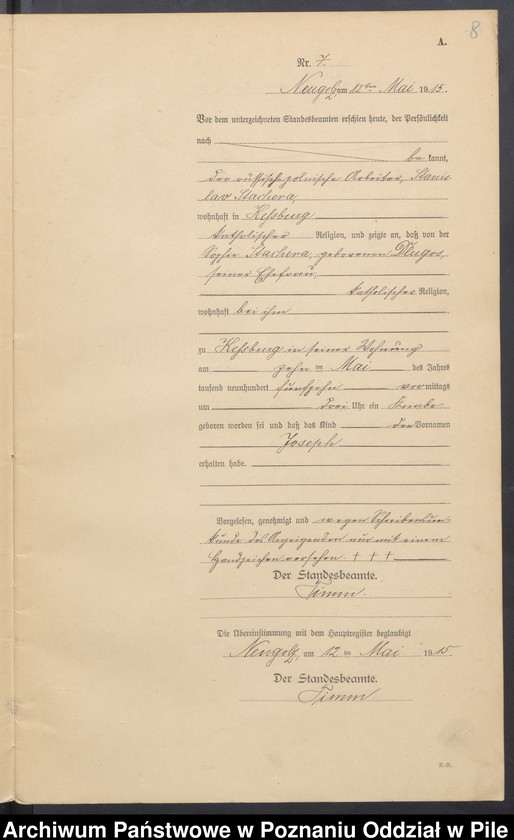 8
A.
Nr. 7.
Neugolz am 12ten Mai 1915.
Vor dem unterzeichneten Standesbeamten erschien heute, der Persönlichkeit
nach
be kannt,
der russisch polnische Arbeiter, Stanis-
lav Stachera,
wohnhaft in Keßburg
katholischer Religion, und zeigte an, daß von der
Sophie Stachera, geborenen Dlugos,
seiner Ehefrau,
katholischer Religion,
wohnhaft bei ihm
zu Keßburg in seiner Wohnung
am zehn ten Mai des Jahres
tausend neunhundert fünfzehn vor mittags
um drei Uhr ein Knabe
geboren worden sei und daß das Kind den Vornamen
Joseph
erhalten habe.
Vorgelesen, genehmigt und wegen Schreibensun-
kunde des Anzeigenden nur mit einem
Handzeichen versehen. + + +
Der Standesbeamte.
Timm.
Die Übereinstimmung mit dem Hauptregister beglaubigt
Neugolz, am 12 ten Mai 1915.
Der Standesbeamte.
Timm.
Archiwum Państwowe w Poznaniu Oddział w Pile